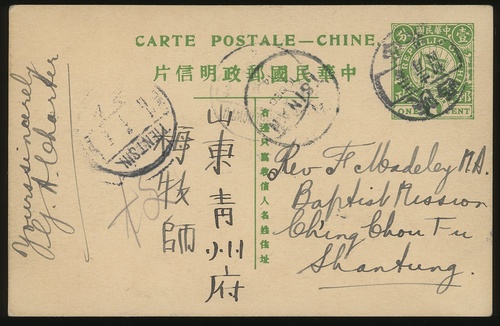 CARTE POSTALE—CHINE.
片信明政郵國民華中
分 壹
ONE CENT
TIENTSIN
SINAN
右邊只寫收信人名姓住址
山東青州府
梅牧師
Rev F Madeley M.A.
Baptist Mission
Ching Chou Fu
Shantung.
Yours sincerely
A. Charter